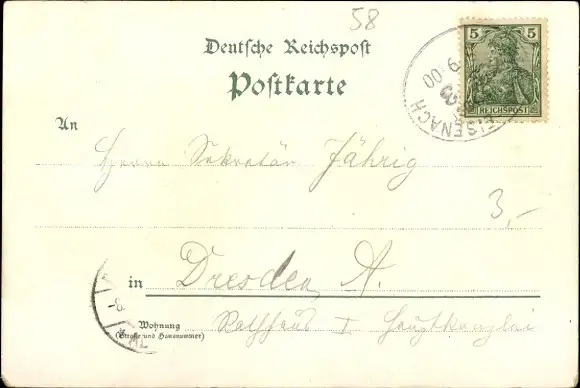 58
Deutsche Reichspost
Postkarte
5 5
REICHSPOST
EISENACH
9 00
An
Herrn Sekretär Jährig
3,-
in Dresden A.
Wohnung
(Straße und Hausnummer)
Rathhaus I Hauptkanzlei